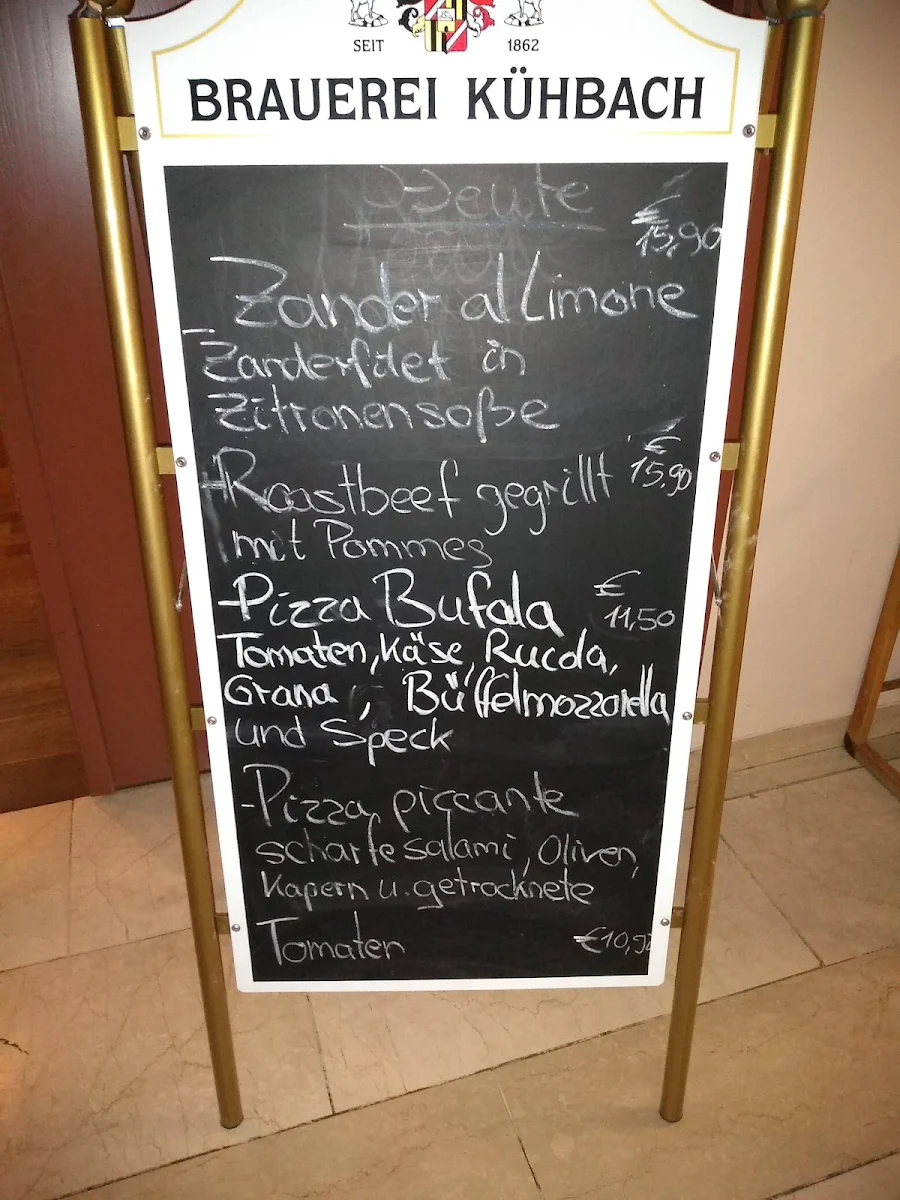 SEIT 1862
BRAUEREI KÜHBACH
Heute
€
15,90
Zander al Limone
Zanderfilet in
Zitronensoße
€
- Roastbeef gegrillt 15,90
mit Pommes
- Pizza Bufala € 11,50
Tomaten, Käse, Rucola,
Grana, Büffelmozzarella
und Speck
- Pizza piccante
scharfe Salami, Oliven,
Kapern u. getrocknete
Tomaten